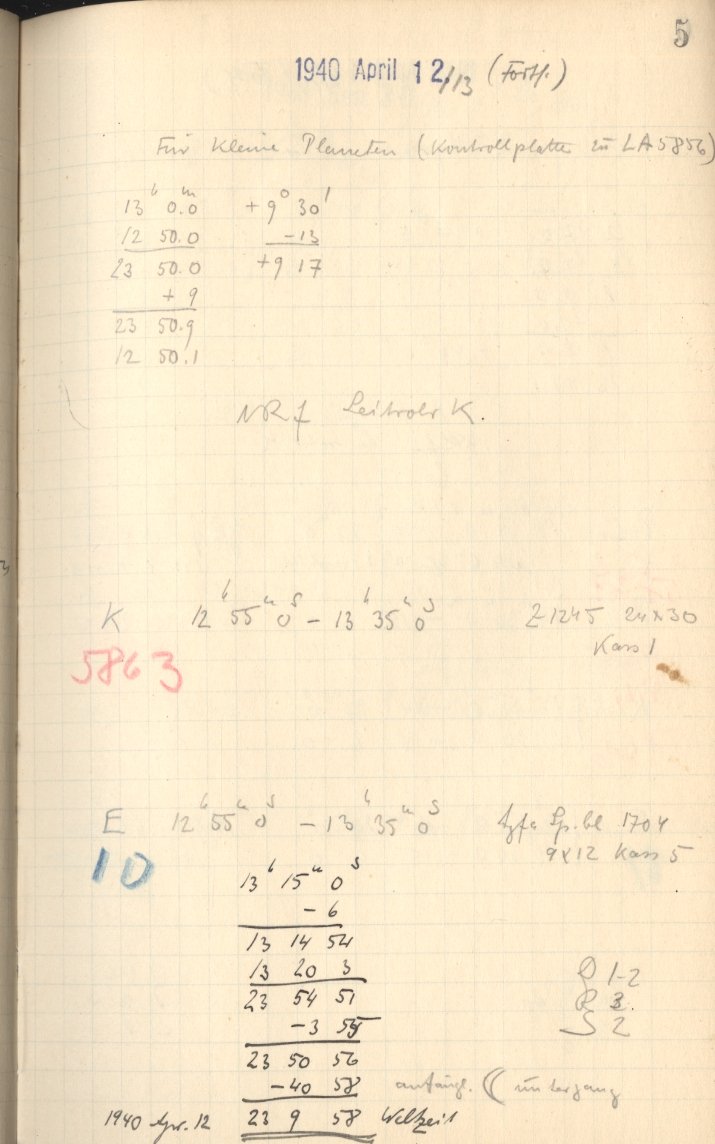 5
1940 April 12./13 (Forts.)
Für Kleine Planeten (Kontrollplatte zu LA 5856)
13ʰ 0.0ᵐ +9° 30'
12 50.0 -13
23 50.0 +9 17
+ 9
23 50.9
12 50.1
NR f Leitrohr K.
K 12ʰ 55ᵐ 0ˢ - 13ʰ 35ᵐ 0ˢ Z 1245 24x30
Kass 1
5863
E 12ʰ 55ᵐ 0ˢ - 13ʰ 35ᵐ 0ˢ Agfa Sp. bl 1704
10 9x12 Kass 5
13ʰ 15ᵐ 0ˢ
- 6
13 14 54
13 20 3 Q 1-2
23 54 51 R 3.
-3 55 S 2
23 50 56
-40 58 anfängl. ☾ untergang
1940 Apr. 12 23 9 58 Weltzeit